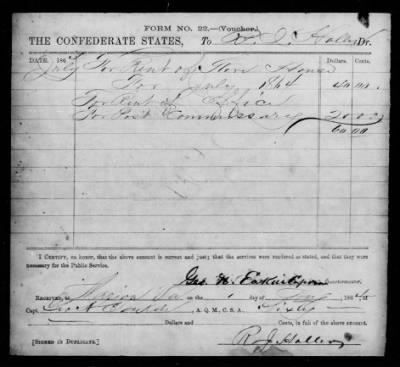 FORM NO. 22.—(Voucher.)
THE CONFEDERATE STATES, To R. J. Dr.
DATE. 186 Dollars. Cents.
July For Rent of Store House
For July 1864 40 00
For Rent of Office
For Post Commissary 20 00
60 00
I CERTIFY, on honor, that the above account is correct and just; that the services were rendered as stated, and that they were
necessary for the Public Service.
Geo. H. Quartermaster.
RECEIVED, at Marion Va on the day of 186 of
Capt. A. Q. M., C. S. A. Sixty
Dollars and Cents, in full of the above amount.
[SIGNED IN DUPLICATE.] R. J.